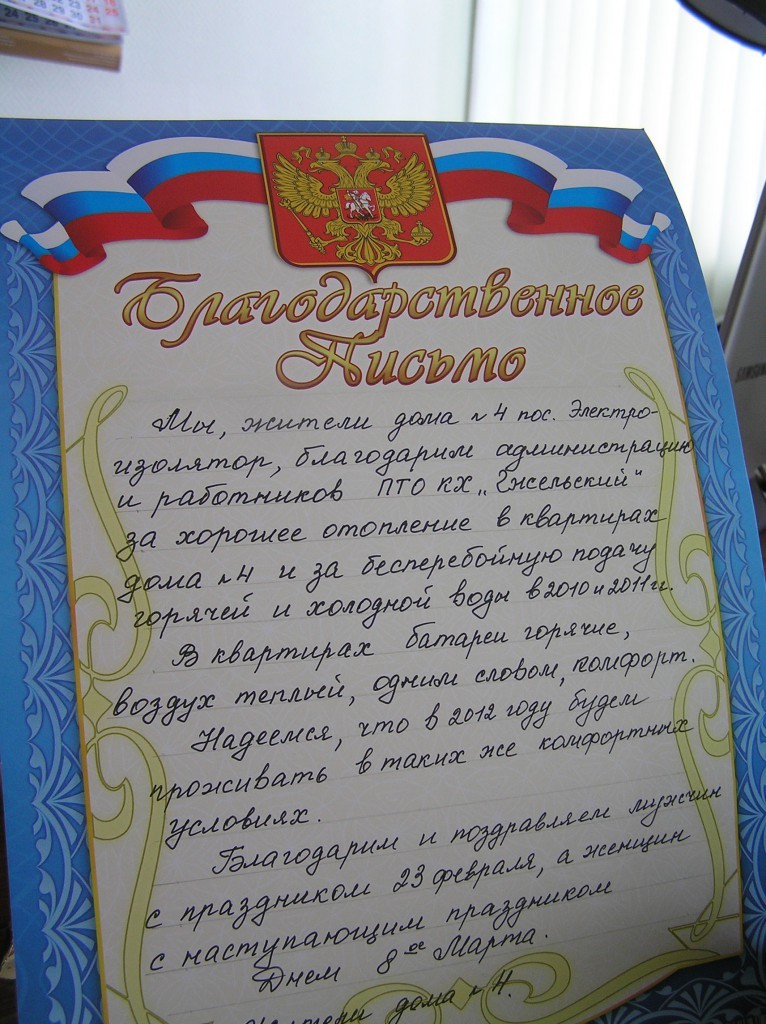 24 25 26
28 29 30 31
23 24 25
30 31
Благодарственное
Письмо
Мы, жители дома №4 пос. Электро-
изолятор, благодарим администрацию
и работников ПТО КХ „Гжельский"
за хорошее отопление в квартирах
дома №4 и за бесперебойную подачу
горячей и холодной воды в 2010 и 2011 гг.
В квартирах батареи горячие,
воздух теплый, одним словом, комфорт.
Надеемся, что в 2012 году будем
проживать в таких же комфортных
условиях.
Благодарим и поздравляем мужчин
с праздником 23 февраля, а женщин
с наступающим праздником
Днем 8ое Марта.
Жители дома №4.
SAMSUNG